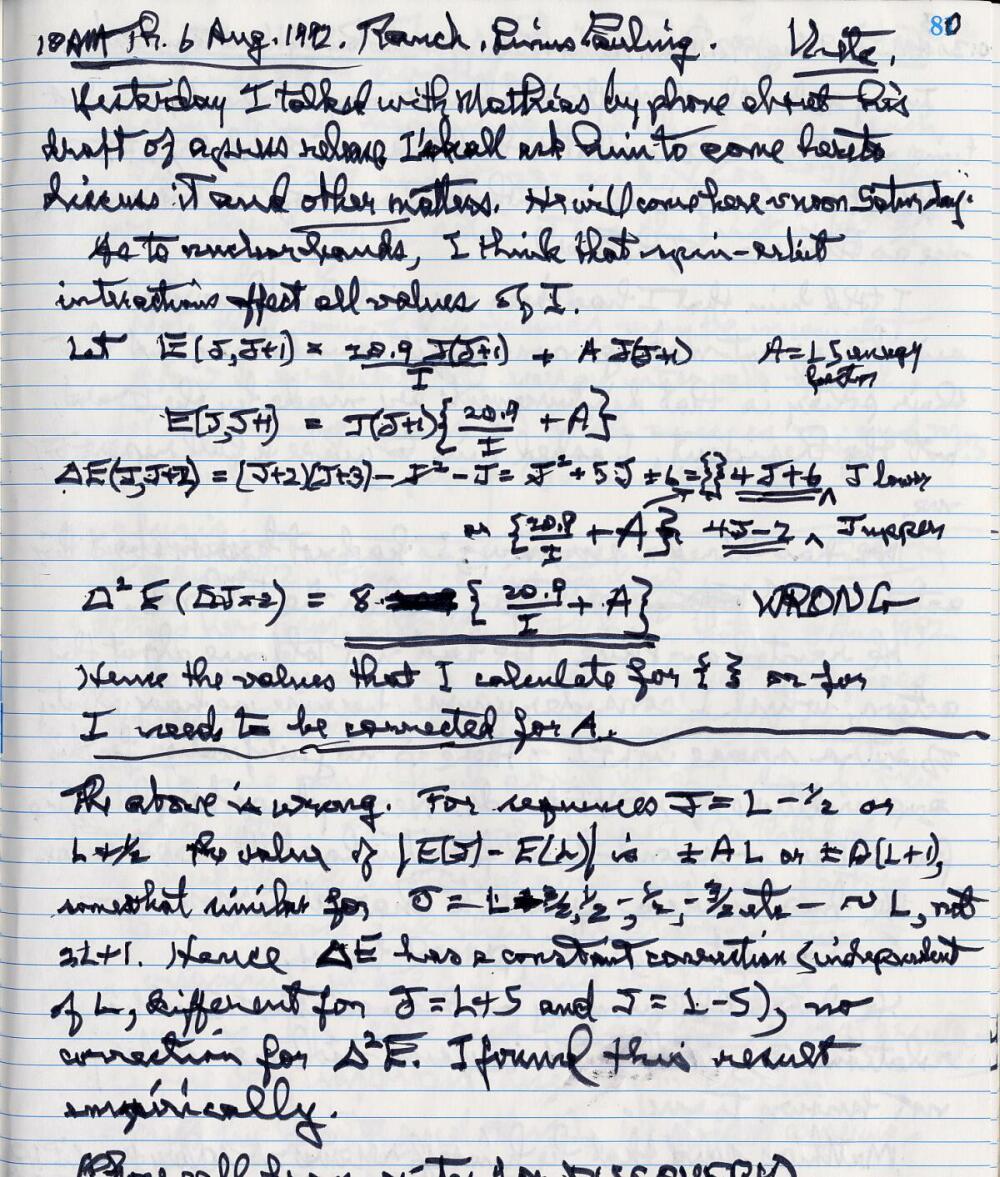 80
10 AM Th. 6 Aug. 1992. Ranch. Linus Pauling. Note.
Yesterday I talked with Mathias by phone about his
draft of a press release. I shall ask him to come here to
discuss it and other matters. He will come here @ noon Saturday.
As to nuclear bands, I think that spin-orbit
interactions affect all values of I.
Let E(J,J+1) = 20.9 J(J+1)/I + A J(J+1) A = LS energy
E(J,J+1) = J(J+1){20.9/I + A}
ΔE(J,J+2) = (J+2)(J+3) – J² – J = J² + 5J + 6 = {} 4J+6, J lower
or {20.9/I + A} 4J–2, J upper
Δ²E (ΔJ=2) = 8 {20.9/I + A} WRONG
Hence the values that I calculate for { } or for
I needs to be corrected for A.
The above is wrong. For sequences J = L – 1/2 or
L + 1/2 the value of |E(J) – E(L)| is ± A L or ± A(L+1),
somewhat similar for J = L 3/2, 1/2, –1/2, –3/2 etc – ~ L, not
2L+1. Hence ΔE has a constant correction (independent
of L, different for J = L+S and J = L–S), no
correction for Δ²E. I found this result
empirically.